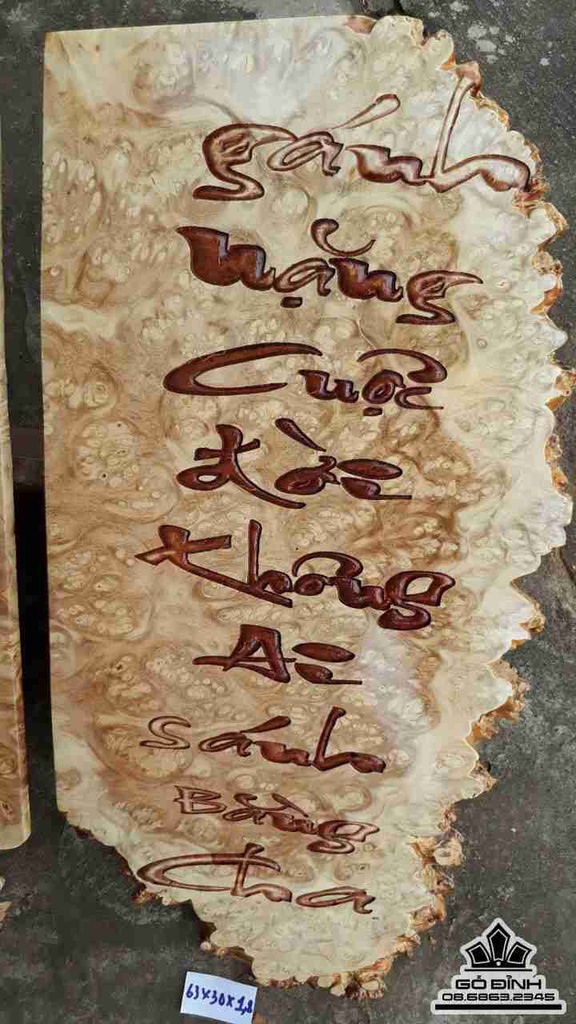 gánh
nặng
Cuộc
Đời
không
Ai
sánh
Bằng
Cha
63x30x1,8
GỖ ĐỈNH
08.6863.2345